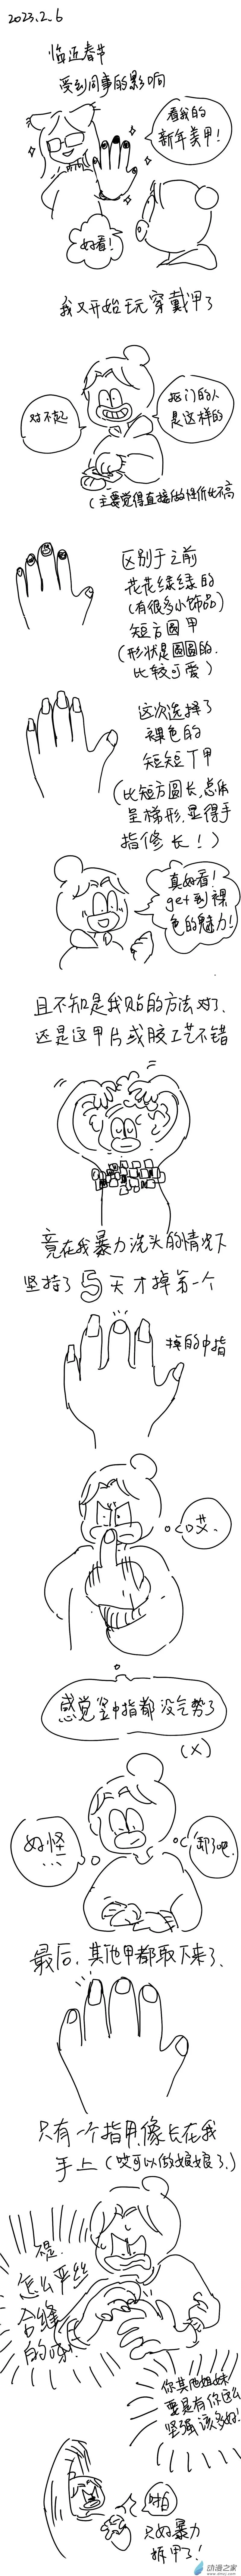 2023.2.6
临近春节
受到同事的影响
看我的
新年美甲!
好看!
我又开始玩穿戴甲了
对不起
抠门的人
是这样的
(主要觉得直接做的性价比不高
区别于之前
花花绿绿的
(有很多小饰品)
短方圆甲
(形状是圆圆的.
比较可爱)
这次选择了
裸色的
短短丁甲
(比短方圆长,总体
呈梯形,显得手
指修长!)
真好看!
get到裸
色的魅力!
且不知是我贴的方法对了.
还是这甲片或胶工艺不错
竟在我暴力洗头的情况下
坚持了5天才掉第一个
掉的中指
哎.
感觉竖中指都没气势了
(X)
好怪
...
卸了吧.
最后.其他甲都取下来了.
只有一个指甲像长在我
手上(哎可以做娘娘了.)
不是.
怎么严丝
合缝
的呀!
你其他姐妹
要是有你这么
坚强该多好!
啪
只好暴力
拆甲了!
动漫之家
www.dmzj.com